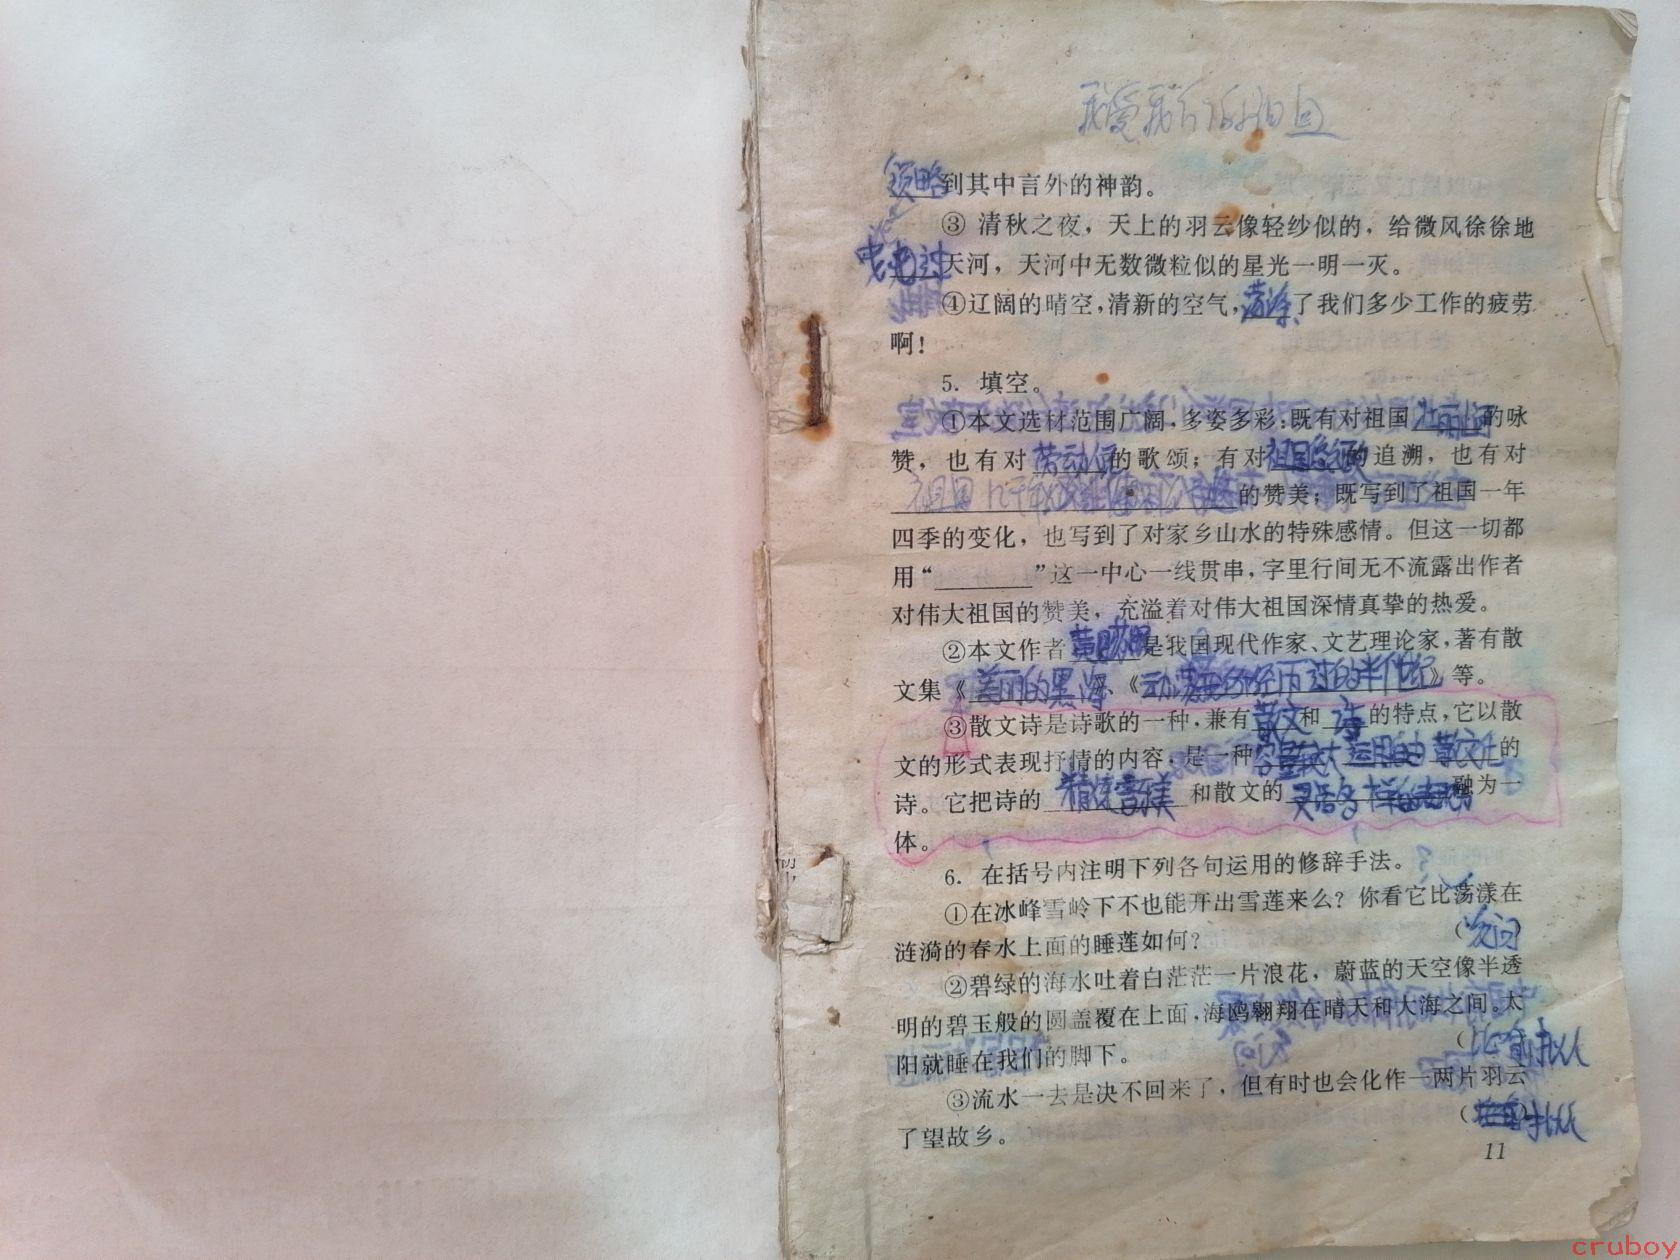 我爱我们的祖国
领略到其中言外的神韵。
③ 清秋之夜，天上的羽云像轻纱似的，给微风徐徐地
天河，天河中无数微粒似的星光一明一灭。
④辽阔的晴空，清新的空气，荡涤了我们多少工作的疲劳
啊！
5. 填空。
①本文选材范围广阔，多姿多彩；既有对祖国 的咏
赞，也有对劳动人民的歌颂；有对祖国 的追溯，也有对
的赞美；既写到了祖国一年
四季的变化，也写到了对家乡山水的特殊感情。但这一切都
用“______”这一中心一线贯串，字里行间无不流露出作者
对伟大祖国的赞美，充溢着对伟大祖国深情真挚的热爱。
②本文作者黄 是我国现代作家、文艺理论家，著有散
文集《美丽的黑海》、《动荡 的半世纪》等。
③散文诗是诗歌的一种，兼有散文和 诗 的特点，它以散
文的形式表现抒情的内容，是一种容量较大运用自由散文化的
诗。它把诗的 精炼 美 和散文的 灵活多样的 融为一
体。
6. 在括号内注明下列各句运用的修辞手法。
①在冰峰雪岭下不也能开出雪莲来么？你看它比荡漾在
涟漪的春水上面的睡莲如何？ （反问）
②碧绿的海水吐着白茫茫一片浪花，蔚蓝的天空像半透
明的碧玉般的圆盖覆在上面，海鸥翱翔在晴天和大海之间。太
阳就睡在我们的脚下。 （比喻拟人
③流水一去是决不回来了，但有时也会化作一两片羽云
了望故乡。 （ 拟人
11
cruboy